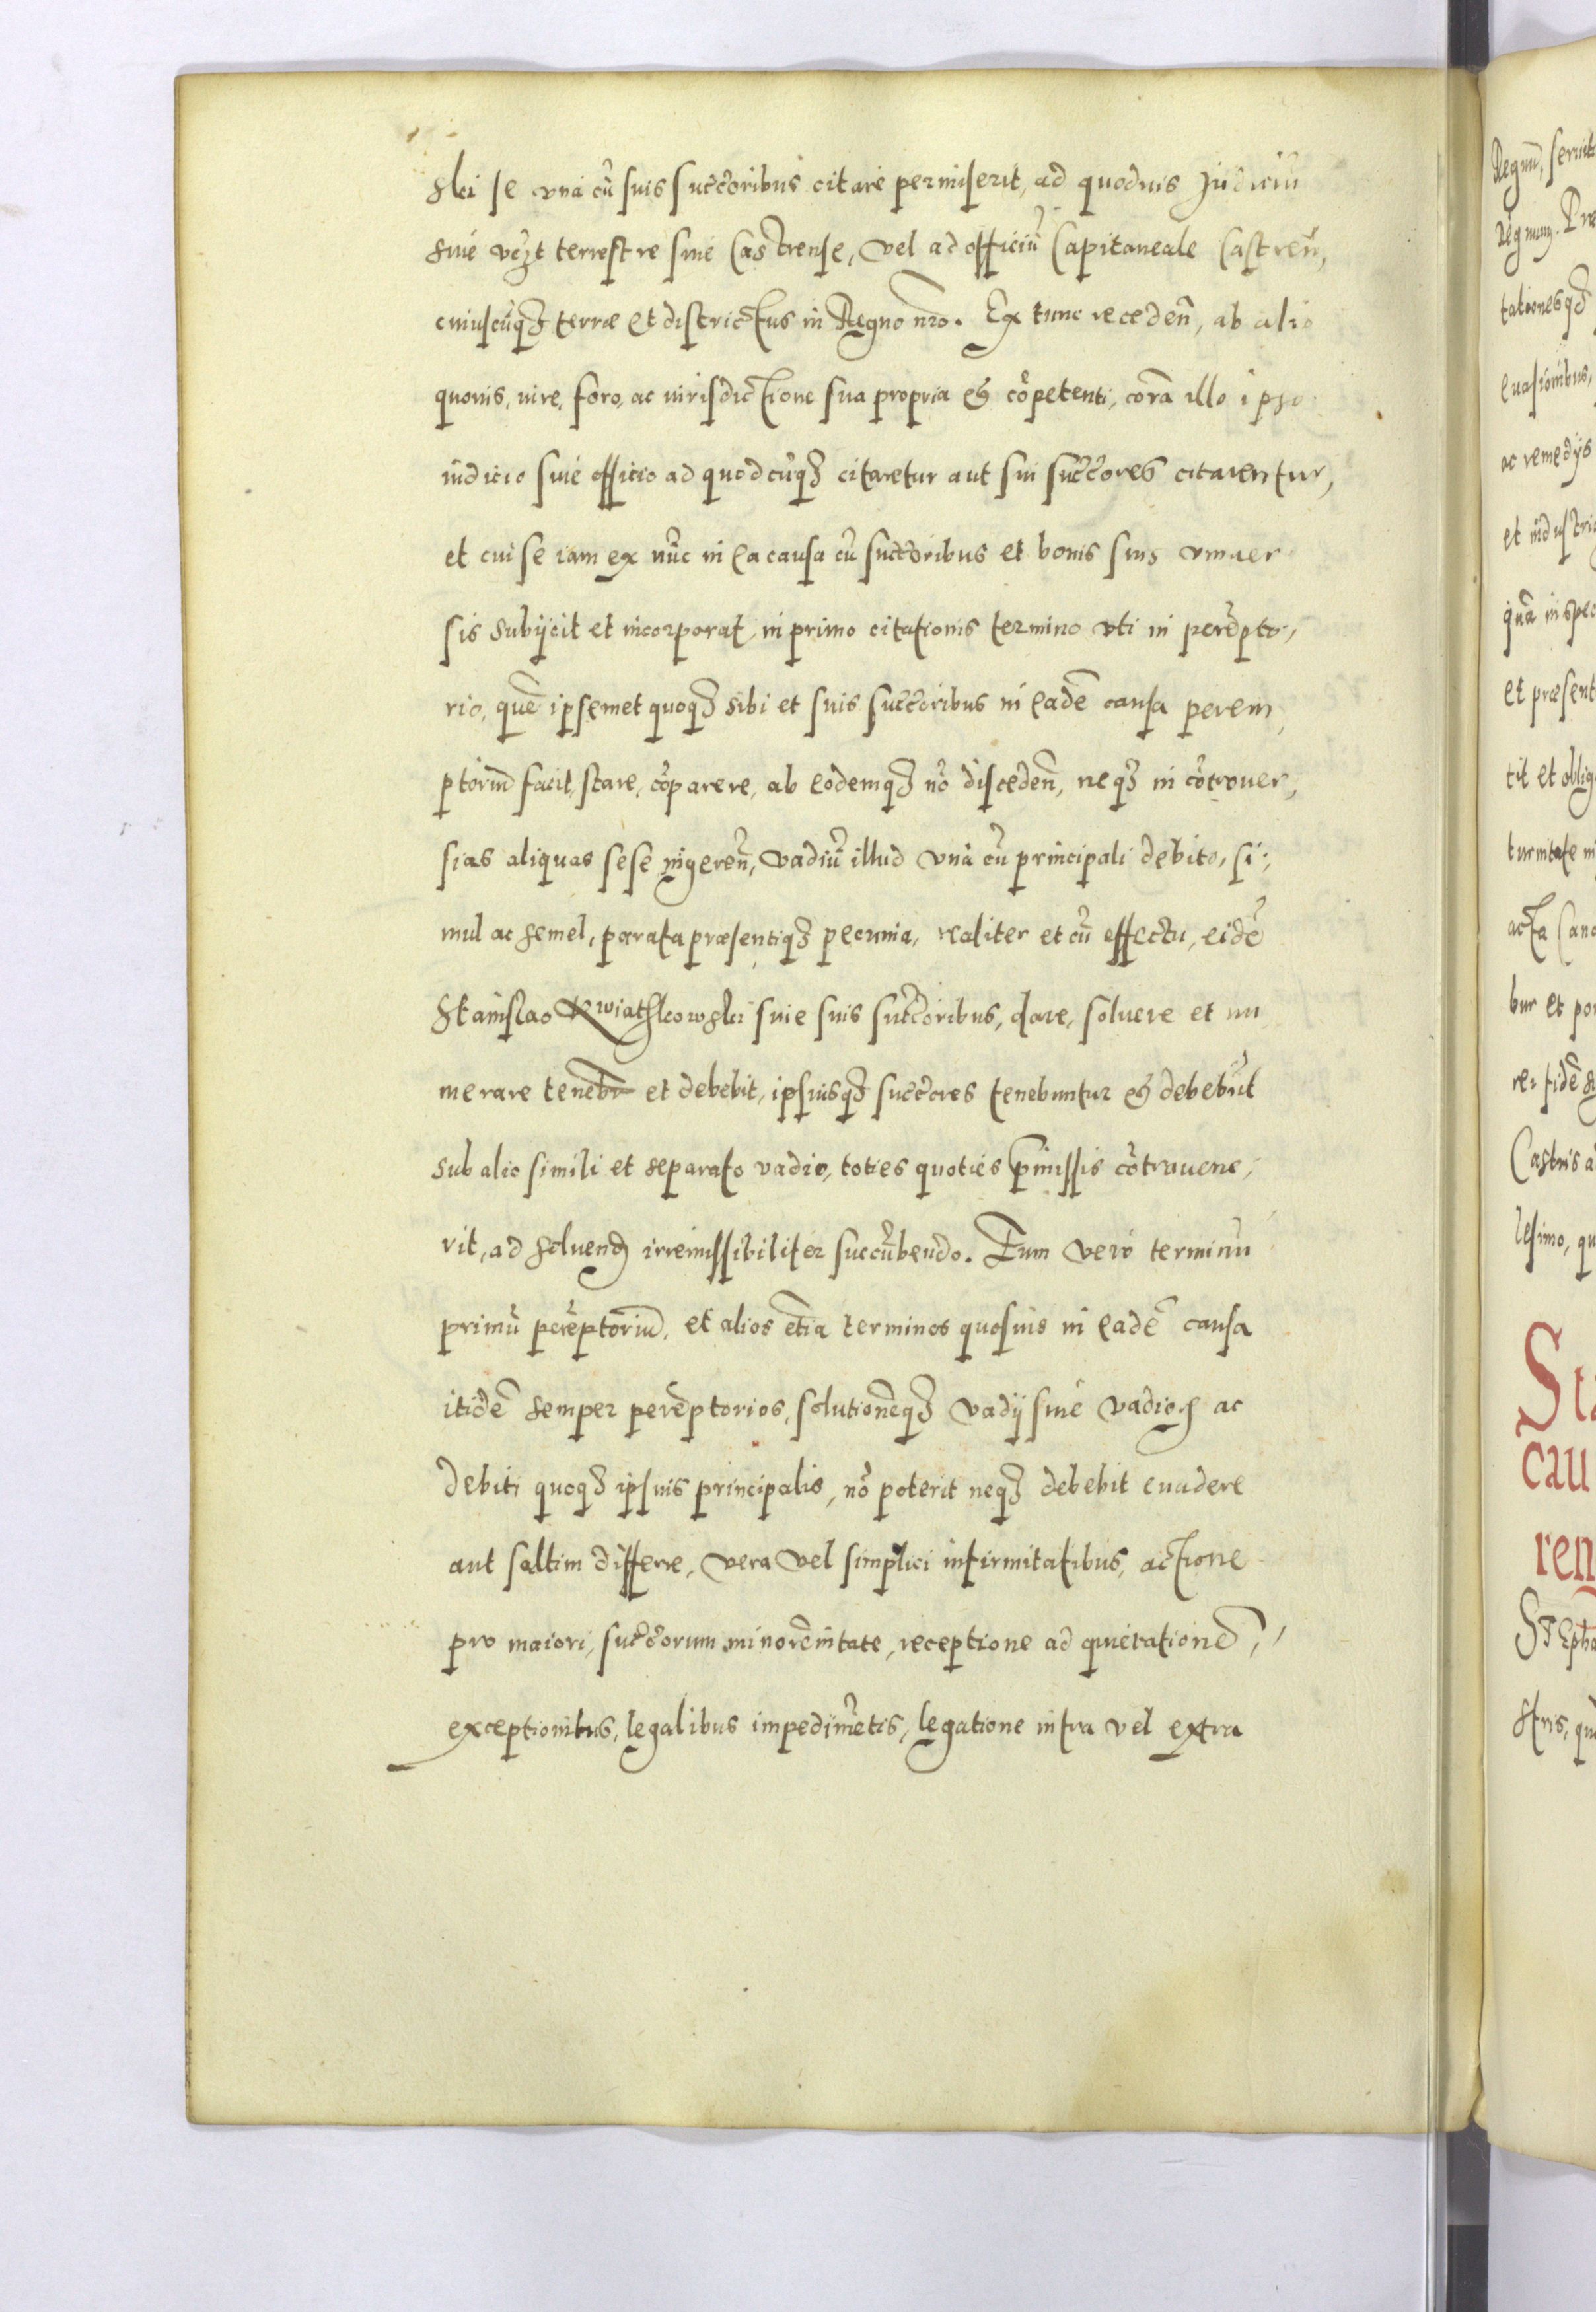 ski se vnà cū suis succōribus citare permiserit, ad quoduis Judiciū
siue verȝt terrestre siue Castrense, vel ad officiū Capitaneale Castren̄,
cuiuscūqȝ terræ et districtus in Regno nr̄o. Ex tunc receden̄, ab alio
quouis, iure, foro, ac iurisdictione sua propria & cōpetenti, corā illo ipso
iudicio siue officio ad quodcūqȝ citaretur aut sui succōres citarentur,
et cui se iam ex nūc in ea causa cū succōribus et bonis suis vniuer
sis subijcit et incorporat, in primo citationis termino vti in perēpto,
rio, quē ipsemet quoqȝ sibi et suis succōribus in eadē causa perem,
ptoriū facit, stare, cōparere, ab eodemqȝ nō disceden̄, neqȝ in cōtrouer,
sias aliquas sese ingeren̄, vadiū illud vnà cū principali debito, si,
mul ac semel, parata præsentiqȝ pecunia, realiter et cū effectu, eidē
Stanislao Kwiathkowski siue suis succōribus, dare, soluere et nu
merare tenebr̄ et debebit, ipsiusqȝ succōres tenebuntur & debebūt
sub alio simili et separato vadio, toties quoties p̄missis cōtrauene,
rit, ad soluend irremissibiliter succūbendo. Eum verò terminū
primū perēptoriū, et alios etiā terminos quosuis in eadē causa
itidē semper perēptorios, solutionēqȝ vadij siue vadioꝝ ac
debiti quoqȝ ipsius principalis, nō poterit neqȝ debebit euadere
aut saltim differre, vera vel simplici infirmitatibus, actione
pro maiori, succōrum minorēnitate, receptione ad quietationē,
exceptionibus, legalibus impedimētis, legatione intra vel extra